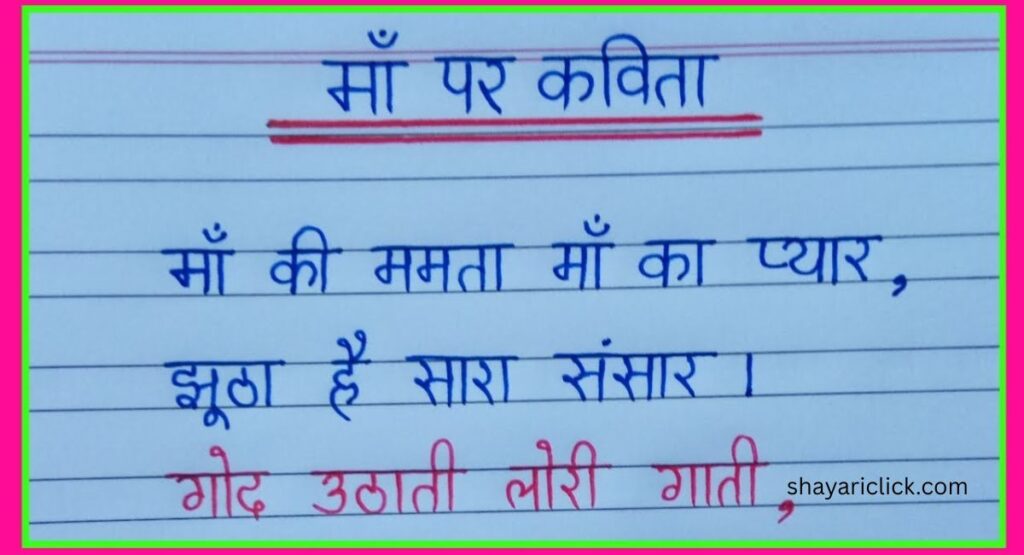 माँ पर कविता
माँ की ममता माँ का प्यार,
झूठा है सारा संसार ।
गोद उठाती लोरी गाती,
shayariclick.com